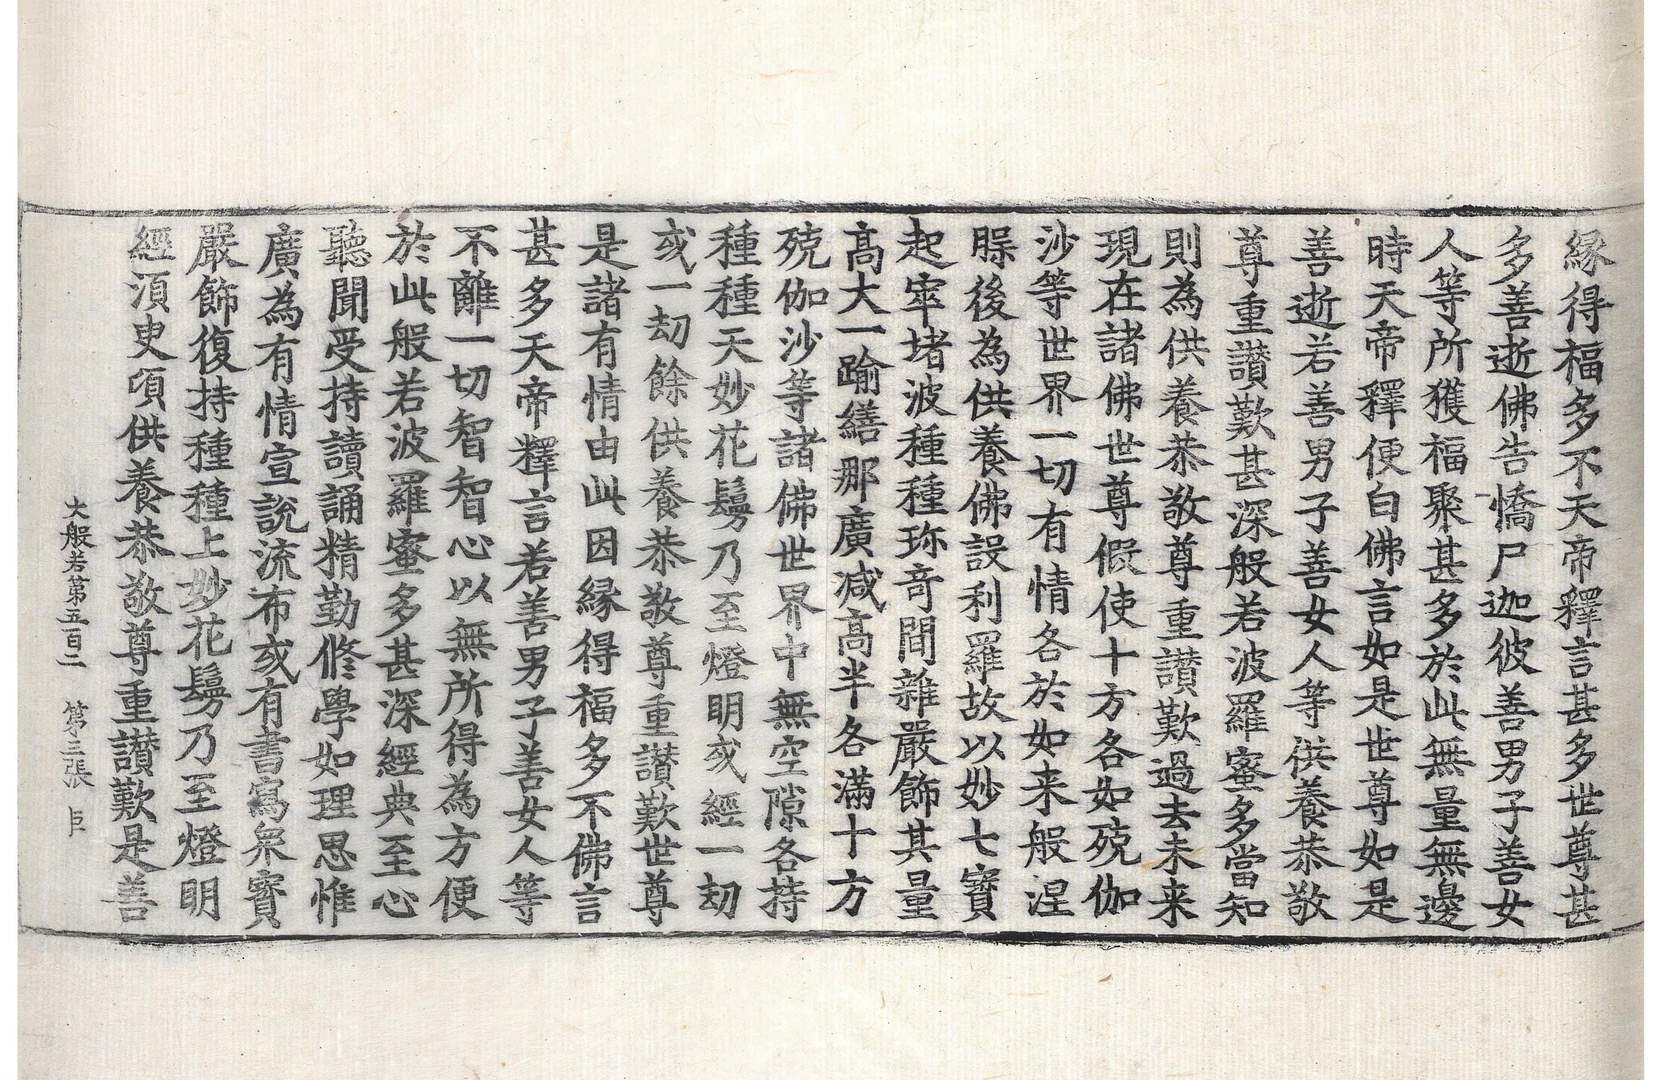 縁得福多不天帝釋言甚多世尊甚
多善逝佛告憍尸迦彼善男子善女
人等所獲福聚甚多於此無量無邊
時天帝釋便白佛言如是世尊如是
善逝若善男子善女人等供養恭敬
尊重讃歎甚深般若波羅蜜多當知
則為供養恭敬尊重讃歎過去未来
現在諸佛世尊假使十方各如殑伽
沙等世界一切有情各於如来般涅
槃後為供養佛設利羅故以妙七寶
起窣堵波種種珎竒間雜嚴飾其量
髙大一踰繕那廣减髙半各滿十方
殑伽沙等諸佛世界中無空隙各持
種種天妙花鬘乃至燈明或經一劫
或一劫餘供養恭敬尊重讃歎世尊
是諸有情由此因縁得福多不佛言
甚多天帝釋言若善男子善女人等
不離一切智智心以無所得為方便
於此般若波羅蜜多甚深經典至心
聽聞受持讀誦精勤修學如理思惟
廣為有情宣說流布或有書寫衆寶
嚴飾復持種種上妙花鬘乃至燈明
經須臾頃供養恭敬尊重讃歎是善
大般若第五百二 第三張 臣